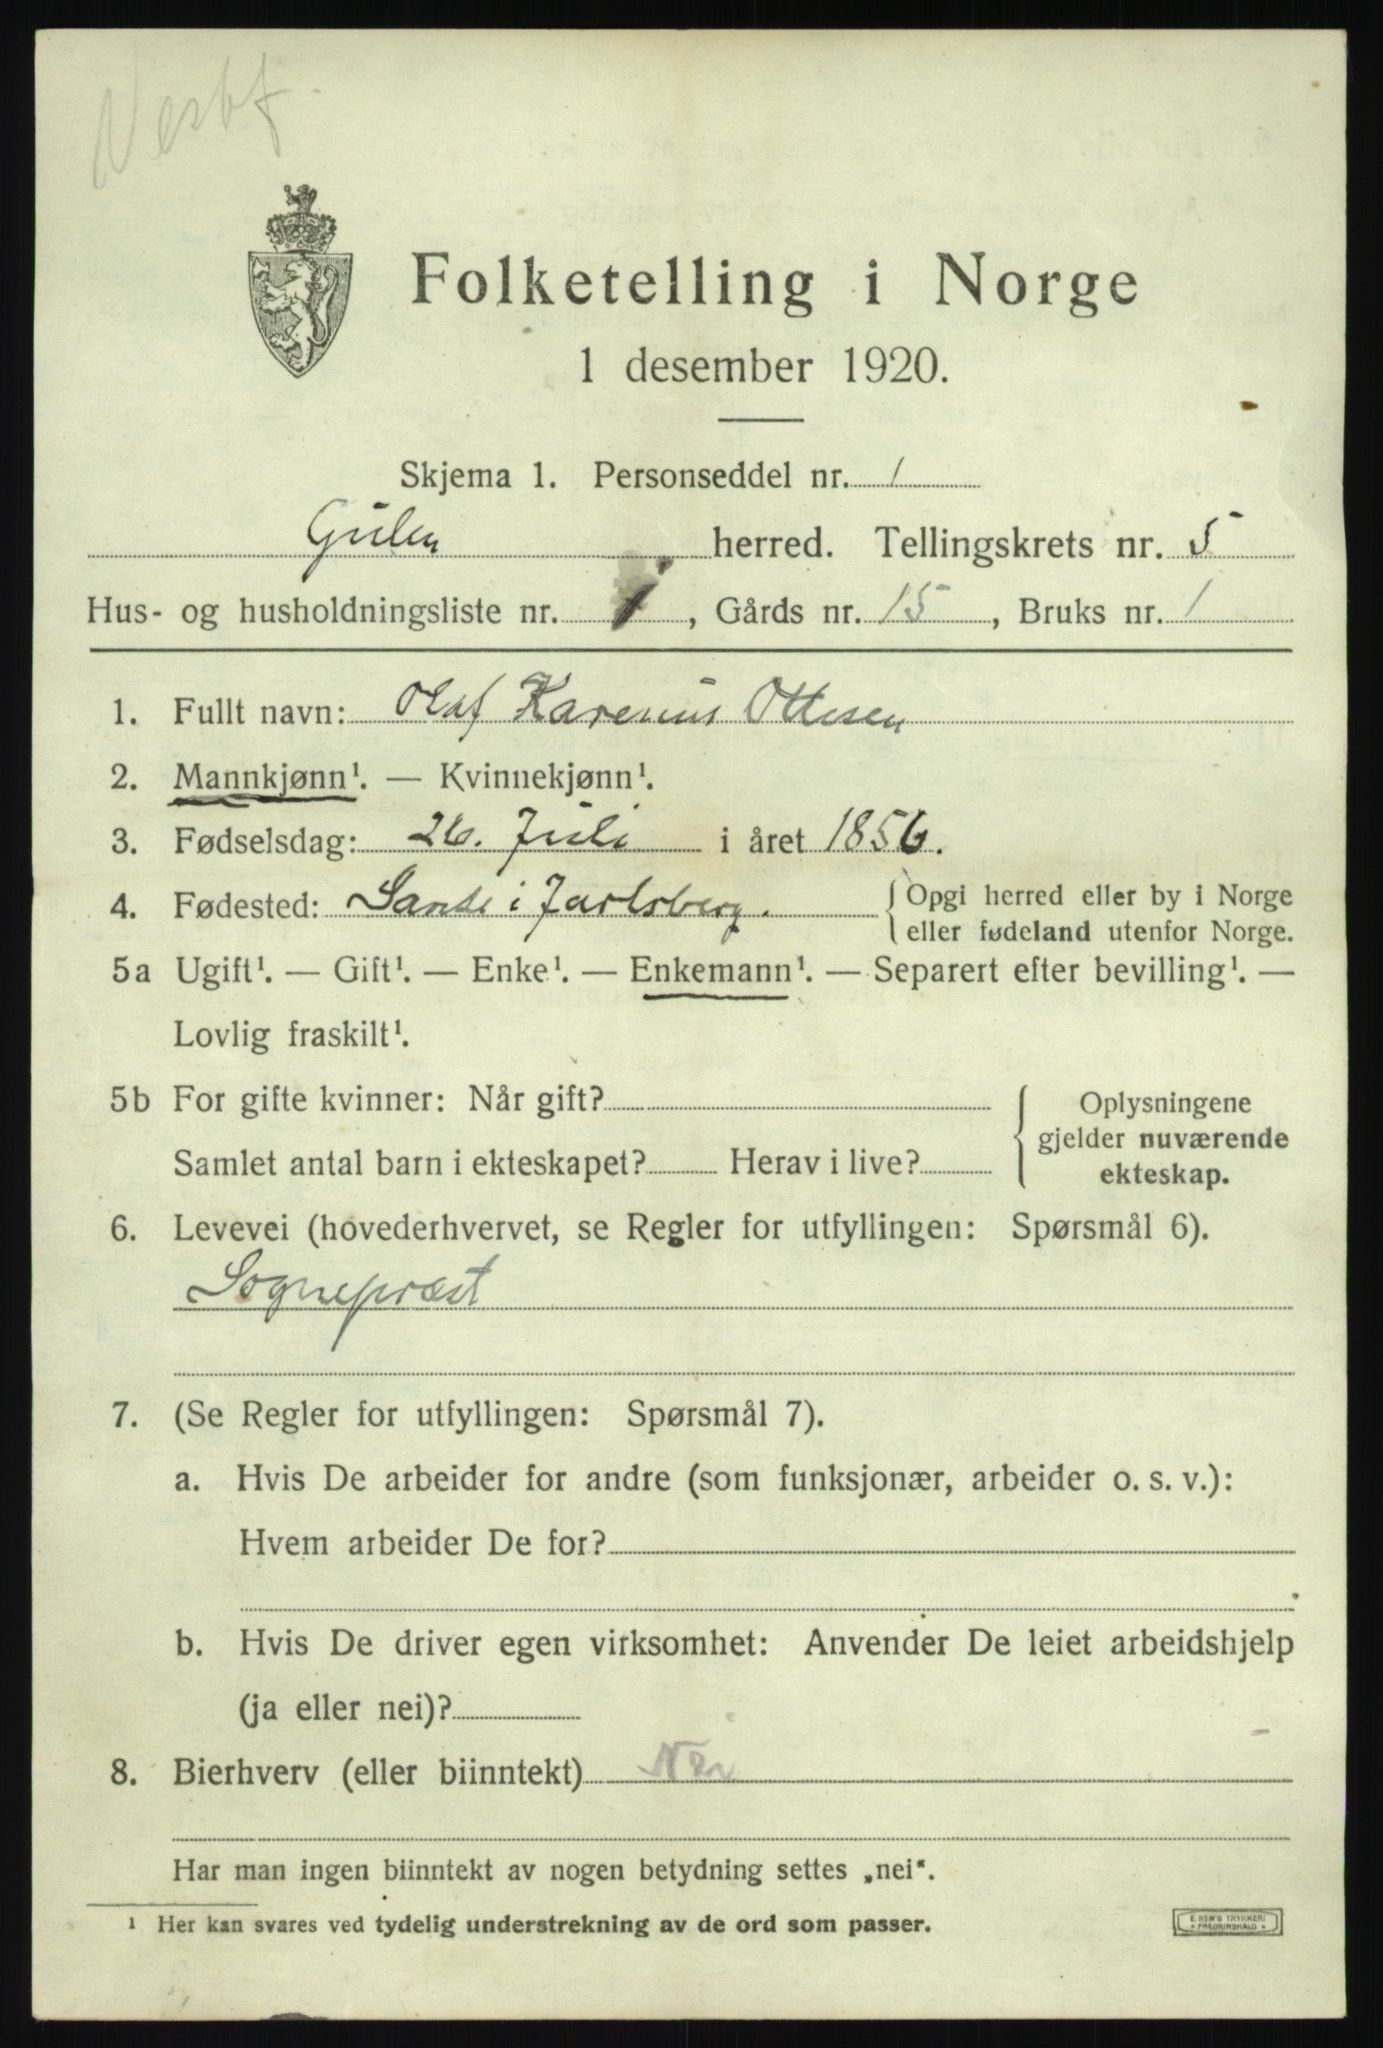 Folketelling i Norge
1 desember 1920.
Skjema 1. Personseddel nr. 1
Gulen herred. Tellingskrets nr. 5
Hus- og husholdningsliste nr. 1, Gårds nr. 15, Bruks nr. 1
1. Fullt navn: Olaf Karenius Ottesen
2. Mannkjønn¹. — Kvinnekjønn¹.
3. Fødselsdag: 26. Juli i året 1856.
4. Fødested: Sande i Jarlsberg. { Opgi herred eller by i Norge
eller fødeland utenfor Norge.
5a Ugift¹. — Gift¹. — Enke¹. — Enkemann¹. — Separert efter bevilling¹. —
Lovlig fraskilt¹.
5b For gifte kvinner: Når gift?
Samlet antal barn i ekteskapet? Herav i live?
Oplysningene
gjelder nuværende
ekteskap.
6. Levevei (hovederhvervet, se Regler for utfyllingen: Spørsmål 6).
Sognepræst
7. (Se Regler for utfyllingen: Spørsmål 7).
a. Hvis De arbeider for andre (som funksjonær, arbeider o. s. v.):
Hvem arbeider De for?
b. Hvis De driver egen virksomhet: Anvender De leiet arbeidshjelp
(ja eller nei)?
8. Bierhverv (eller biinntekt) Nei
Har man ingen biinntekt av nogen betydning settes „nei“.
¹ Her kan svares ved tydelig understrekning av de ord som passer.
E. SEM'S TRYKKERI
FREDRIKSHALD